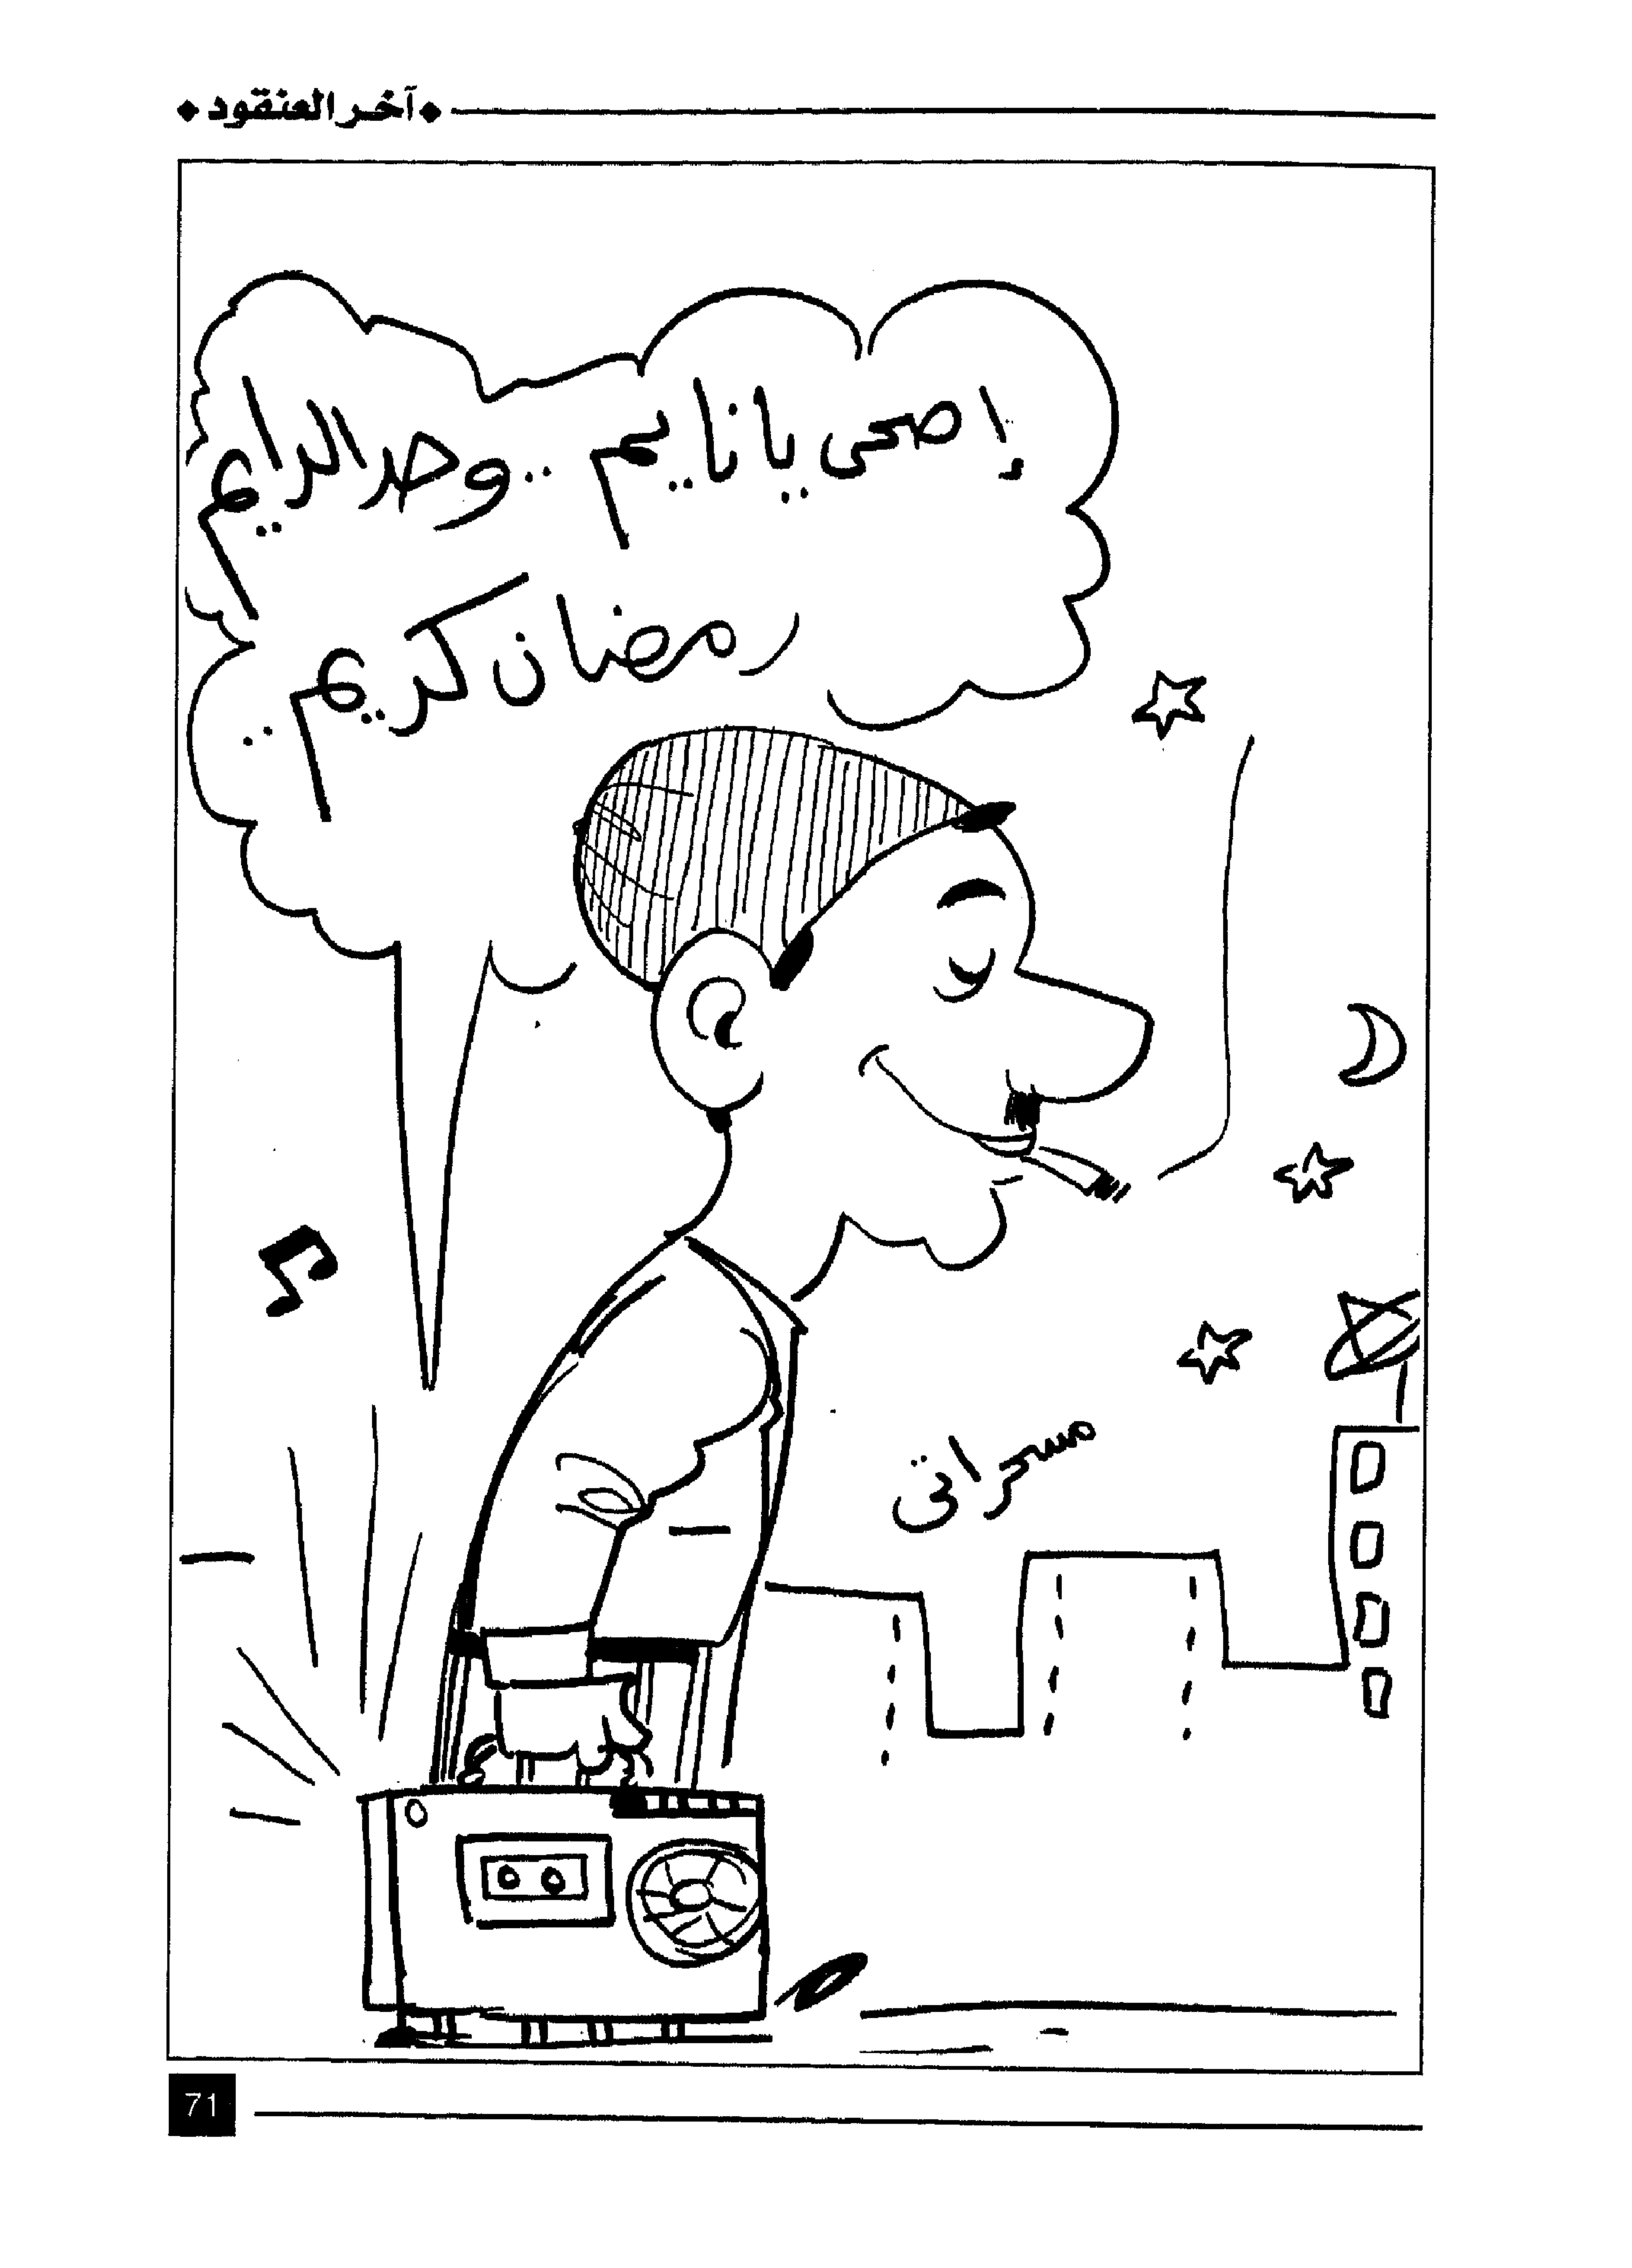 آخر العنقود
إصحى يا نايم .. وحد الدايم
رمضان كريم ..
مسحراتى
71